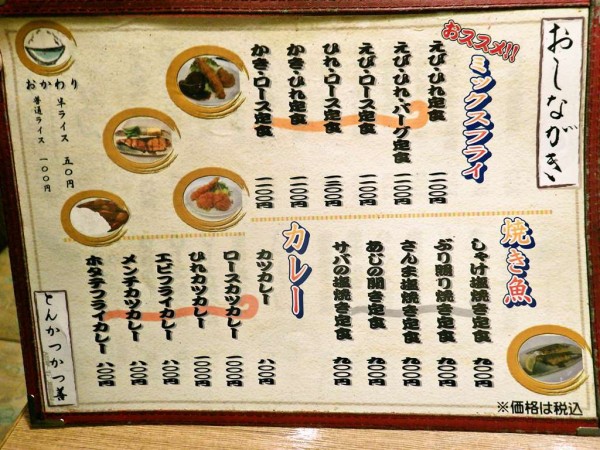 おしながき
おススメ!!
ミックスフライ
えび・ひれ定食 一一〇〇円
えび・ひれ・バーグ定食 一一〇〇円
えび・ロース定食 一一〇〇円
ひれ・ロース定食
かき・ひれ定食 一一〇〇円
かき・ロース定食 一一〇〇円
おかわり
半ライス 五〇円
普通ライス 一〇〇円
焼き魚
しゃけ塩焼き定食 九〇〇円
ぶり照り焼き定食 九〇〇円
さんま塩焼き定食 九〇〇円
あじの開き定食 九〇〇円
サバの塩焼き定食 九〇〇円
カレー
カツカレー 八〇〇円
ロースカツカレー 一〇〇〇円
ひれカツカレー 一〇〇〇円
エビフライカレー 八〇〇円
メンチカツカレー 八〇〇円
ホタテフライカレー 八〇〇円
とんかつかつ善
※価格は税込